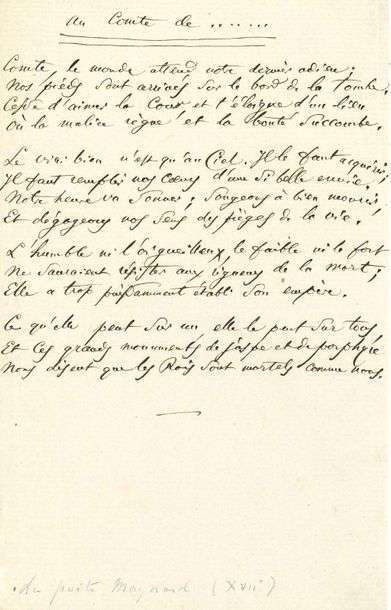 Au Comte de .......
Comte, le monde attend notre dernier adieu;
Nos pieds sont arrivés sur le bord de la tombe;
Cesse d'aimer la Cour et t'éloigne d'un lieu
Où la malice règne et la bonté succombe.
Le vrai bien n'est qu'au Ciel. Il le faut acquérir;
Il faut remplir nos cœurs d'une si belle envie.
Notre heure va sonner; songeons à bien mourir
Et dégageons nos sens des pièges de la vie.
L'humble ni l'orgueilleux, le faible ni le fort
Ne sauraient résister aux rigueurs de la mort;
Elle a trop puissamment établi son empire.
Ce qu'elle peut sur un elle le peut sur tous
Et ces grands monuments de jaspe et de porphyre
Nous disent que les Rois sont mortels comme nous.
Maynard (XVIIe)